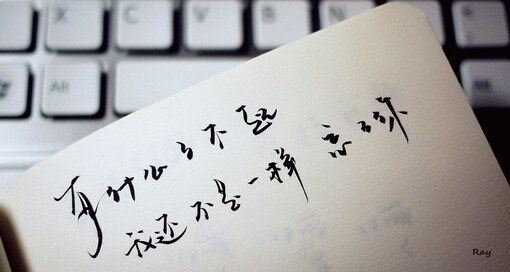 有什么了不起
我还不是一样 忘了你
Ray
X
C
V
B
N
Alt